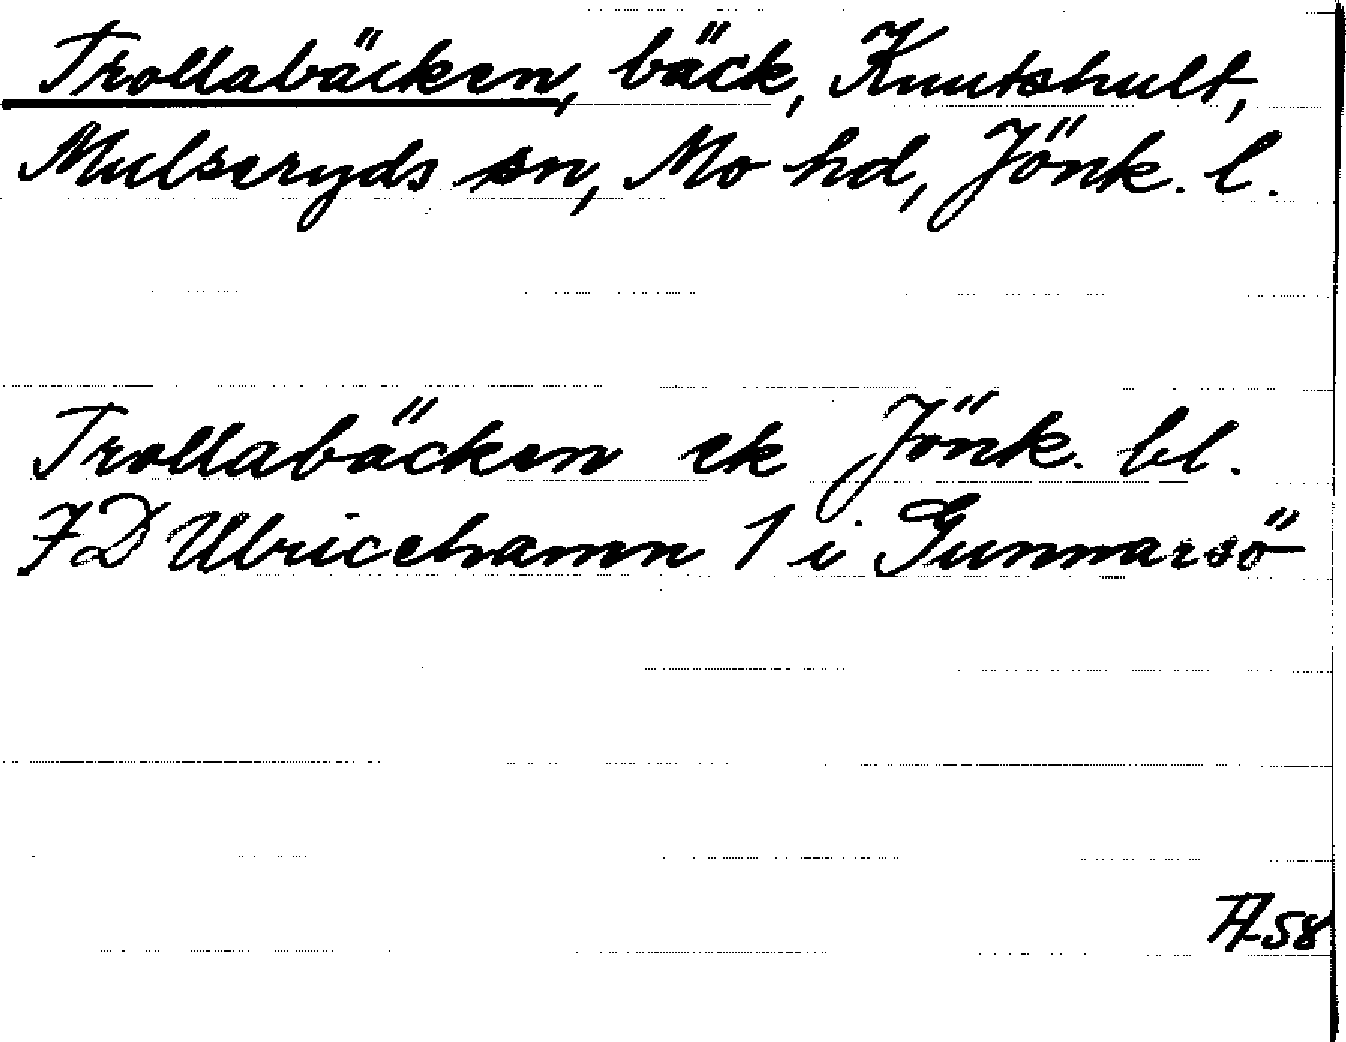 Trollabäcken, bäck, Knutshult,
Mulseryds sn, Mo hd, Jönk. l.
Trollabäcken ek Jönk. bl.
7D Ulricehamn 1 i Gunnarsö
58